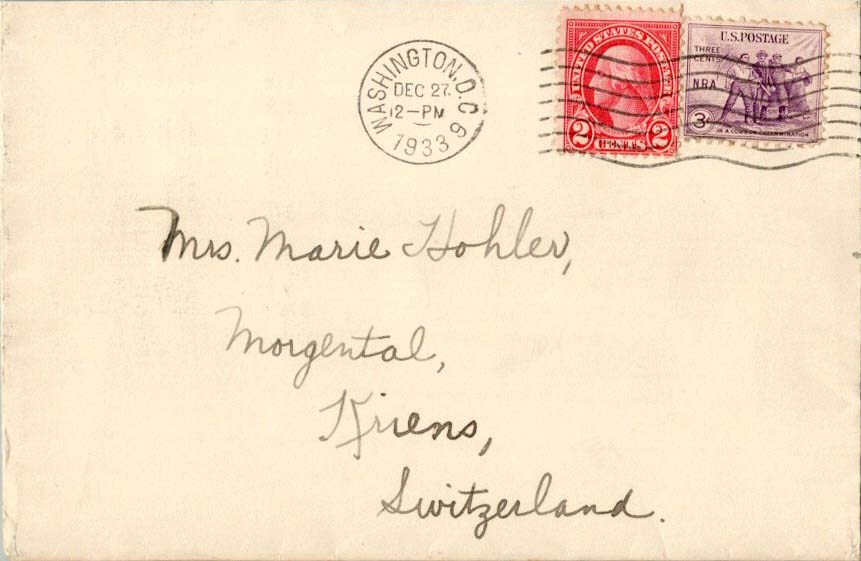 WASHINGTON, D.C.
DEC 27
12-PM
1933
9
UNITED STATES POSTAGE
2 CENTS 2
U.S. POSTAGE
THREE
CENTS
NRA
3¢
IN A COMMON DETERMINATION
Mrs. Marie Hohler,
Morgental,
Kriens,
Switzerland.